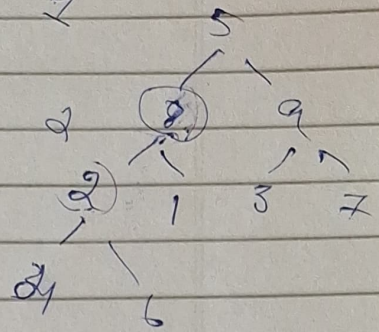 5
2 8 9
2 1 3 7
4 6